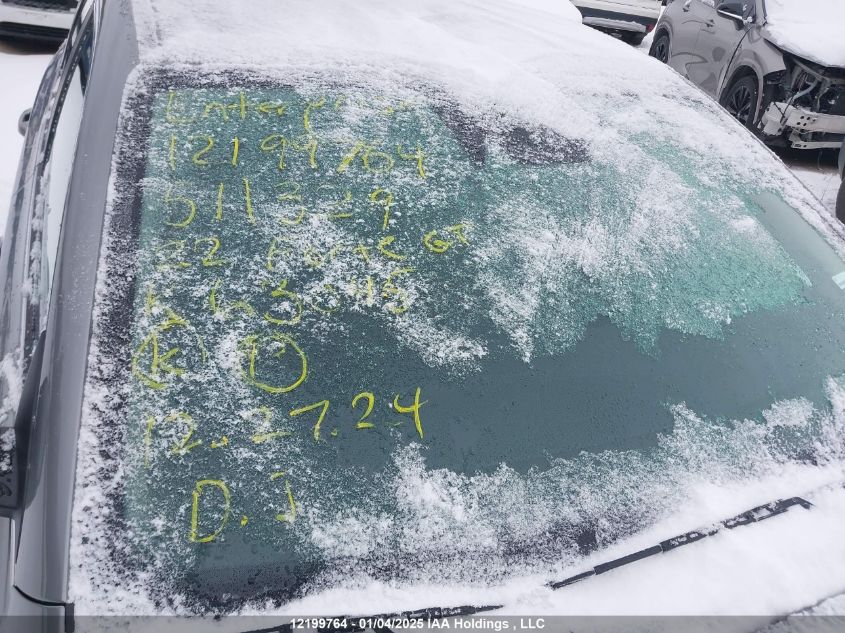 Enterprise
12199764
511329
22 Forte GT
3045
K
12.27.24
D.J
12199764 - 01/04/2025 IAA Holdings , LLC